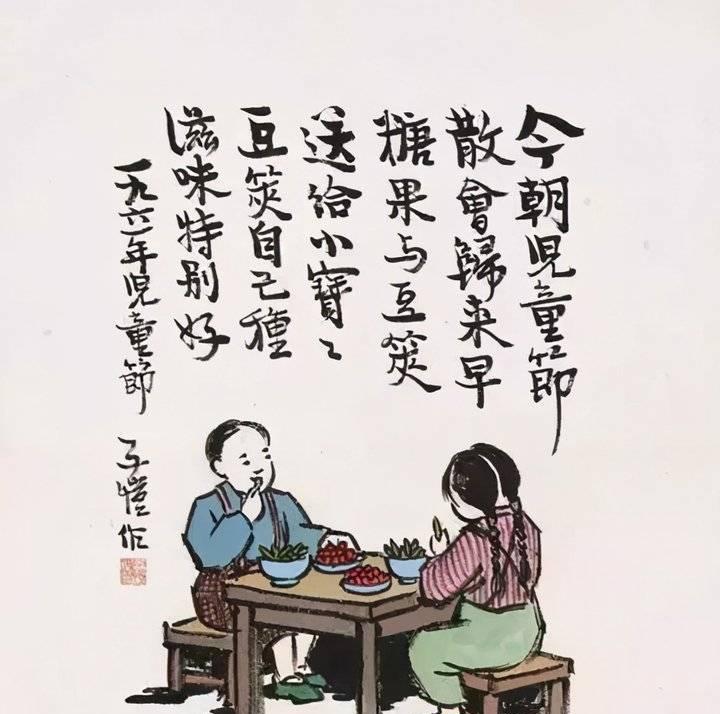 今朝児童節
散會歸来早
糖果与豆筴
送给小寶〻
豆筴自己種
滋味特别好
一九六一年児童節 子愷作